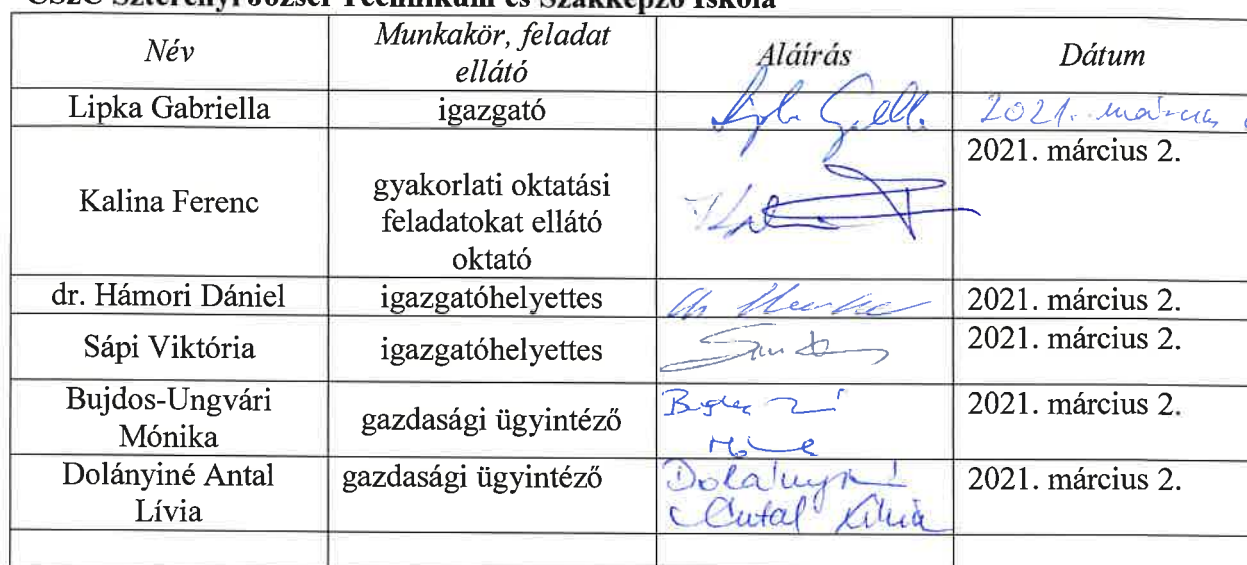 CSZC Szterényi József Technikum és Szakképző Iskola
Név Munkakör, feladat ellátó Aláírás Dátum
Lipka Gabriella igazgató 2021. március
Kalina Ferenc gyakorlati oktatási feladatokat ellátó oktató 2021. március 2.
dr. Hámori Dániel igazgatóhelyettes 2021. március 2.
Sápi Viktória igazgatóhelyettes 2021. március 2.
Bujdos-Ungvári Mónika gazdasági ügyintéző 2021. március 2.
Dolányiné Antal Lívia gazdasági ügyintéző Dolányiné Antal Lívia 2021. március 2.